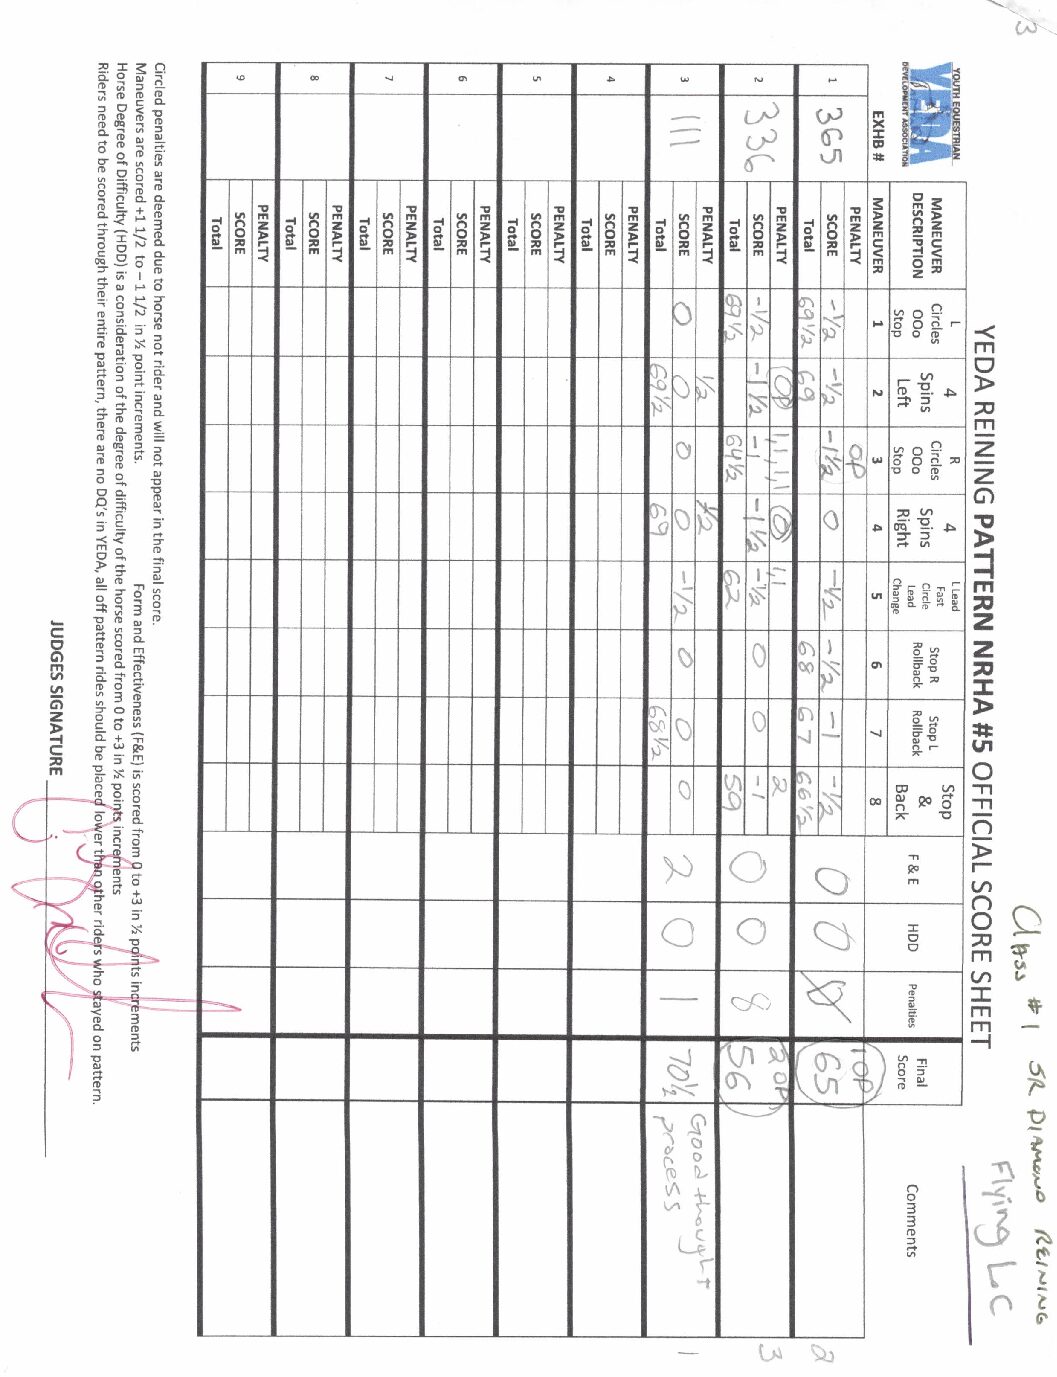 3
Class #1 SR DIAMOND REINING
Flying LC
YOUTH EQUESTRIAN
YEDA
DEVELOPMENT ASSOCIATION
YEDA REINING PATTERN NRHA #5 OFFICIAL SCORE SHEET
MANEUVER DESCRIPTION | L Circles OOo Stop | 4 Spins Left | R Circles OOo Stop | 4 Spins Right | L Lead Fast Circle Lead Change | Stop R Rollback | Stop L Rollback | Stop & Back | F & E | HDD | Penalties | Final Score | Comments
EXHB # | MANEUVER | 1 | 2 | 3 | 4 | 5 | 6 | 7 | 8
1 | 365 | PENALTY | OP | 1OP
SCORE | -1/2 | -1/2 | -1 1/2 | 0 | -1/2 | -1/2 | -1 | -1/2 | 0 | 0 | 65 | 2
Total | 69 1/2 | 69 | 68 | 67 | 66 1/2
2 | 336 | PENALTY | OP | 1,1,1,1 | 1,1 | 2 | 2OP
SCORE | -1/2 | -1 1/2 | -1 | -1 1/2 | -1/2 | 0 | 0 | -1 | 0 | 0 | 8 | 56 | 3
Total | 69 1/2 | 64 1/2 | 62 | 59
3 | 111 | PENALTY | 1/2 | 1/2 | Good thought
SCORE | 0 | 0 | 0 | 0 | -1/2 | 0 | 0 | 0 | 2 | 0 | 1 | 70 1/2 | process | 1
Total | 69 1/2 | 69 | 68 1/2
4 | PENALTY
SCORE
Total
5 | PENALTY
SCORE
Total
6 | PENALTY
SCORE
Total
7 | PENALTY
SCORE
Total
8 | PENALTY
SCORE
Total
9 | PENALTY
SCORE
Total
Circled penalties are deemed due to horse not rider and will not appear in the final score.
Maneuvers are scored +1 1/2 to – 1 1/2 in ½ point increments. Form and Effectiveness (F&E) is scored from 0 to +3 in ½ points increments
Horse Degree of Difficulty (HDD) is a consideration of the degree of difficulty of the horse scored from 0 to +3 in ½ points increments
Riders need to be scored through their entire pattern, there are no DQ's in YEDA, all off pattern rides should be placed lower than other riders who stayed on pattern.
JUDGES SIGNATURE